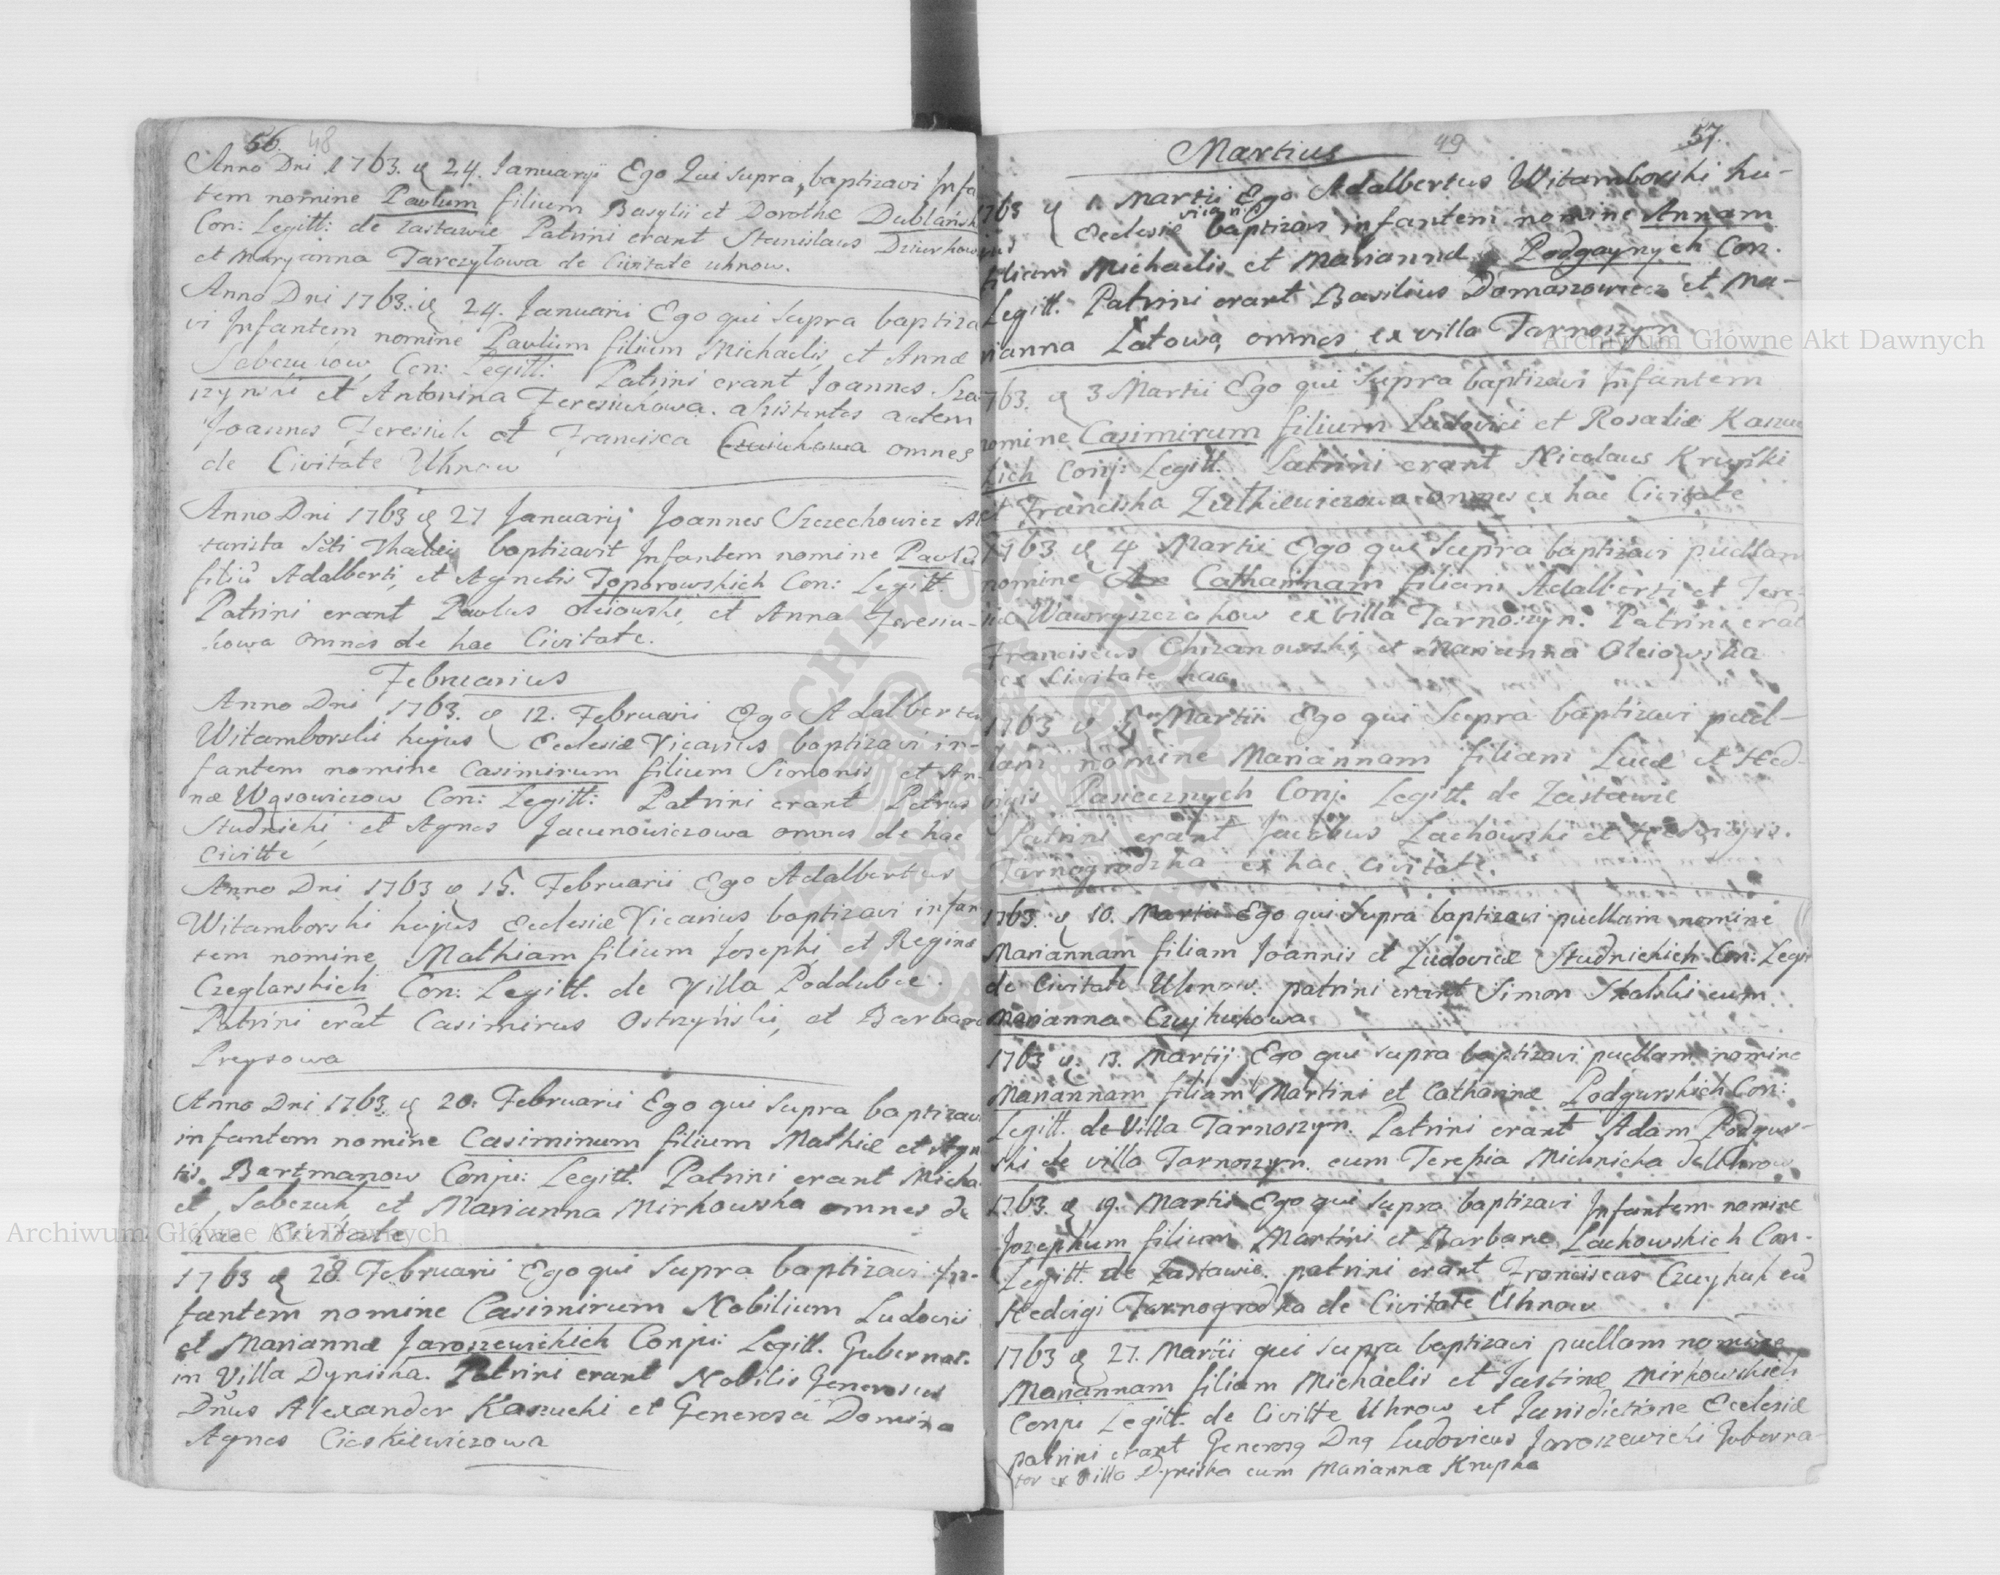 56. 48
Anno Dni 1763. 24. Januarij Ego Qui supra, baptizavi Infan
tem nomine Paulum filium Basylii et Dorothe Dublańsk
Con: Legitt: de Zastawie Patrini erant Stanislaus Dziurkow
et Maryanna Tarczyłowa de Civitate Uhnow.
Anno Dni 1763. 24. Januarii Ego qui supra baptiza
vi Infantem nomine Paulum filium Michaelis, et Annæ
Sabczukow, Con: Legitt: Patrini erant Joannes Sza
czyński et Antonina Feresiukowa. assistentes autem
Joannes Feresiuk et Francisca omnes
de Civitate Uhnow
Anno Dni 1763 27 Januarij Joannes Szczechowicz Al
tarista Scti Thadei baptizavit Infantem nomine Paulū
filiū Adalberti, et Agnetis Toporowskich Con: Legitt.
Patrini erant Paulus Oleiowski, et Anna Feresiu-
kowa omnes de hac Civitate.
Februarius
Anno Dni 1763. 12. Februarii Ego Adalbertus
Witamborski hujus Ecclesiæ Vicarius baptizavi in-
fantem nomine Casimirum filium Simonis et An-
næ Wąsowiczow Con: Legitt: Patrini erant Petrus
Studnicki, et Agnes Jacunowiczowa omnes de hac
Civitte
Anno Dni 1763 15. Februarii Ego Adalbertus
Witamborski hujus Ecclesiæ Vicarius baptizavi infan
tem nomine Mathiam filium Josephi et Reginæ
Czeglarskich Con: Legitt. de Villa Poddubce.
Patrini erāt Casimirus Ostrzyński, et Barbara
Preysowa
Anno Dni 1763. 20. Februarii Ego qui supra baptizavi
infantem nomine Casimirum filium Mathiæ et Agne
tis Bartmanow Conju: Legitt. Patrini erant Micha
el, Sabczuk, et Marianna Mirkowska omnes de
hac Civitate
1763 28 Februarii Ego qui supra baptizavi In-
fantem nomine Casimirum Nobilium Ludovici
et Mariannæ Jaroszewickich Conju: Legitt. Gubernat.
in Villa Dyniska. Patrini erant Nobilis Generosus
Dnus Alexander Kaszucki et Generosa Domina
Agnes Cieskiewiczowa
57. 49
Martius
1763 1. Martii Ego Adalbertus Witamborski hu-
jus Ecclesiæ vicarius baptizavi infantem nomine Annam
filiam Michaelis et Mariannæ Podgaynych Con.
Legitt. Patrini erant Basilius Domaszowiecz et Ma-
rianna Łatowa, omnes ex villa Tarnoszyn
1763. 3 Martii Ego qui supra baptizavi Infantem
nomine Casimirum filium Ludovici et Rosaliæ Kaszuc
kich Conj: Legitt. Patrini erant Nicolaus Krupski
et Franciska Zułkiewiczowa omnes ex hac Civitate
1763 4 Martii Ego qui supra baptizavi puellam
nomine Catharinnam filiam Adalberti et Tere-
siæ Wawryszczakow ex villa Tarnoszyn. Patrini erāt
Franciscus Chrzanowski, et Marianna Oleiowska
ex Civitate hac
1763 5 Martii Ego qui supra baptizavi puel-
lam nomine Mariannam filiam Lucæ et Hed-
vigis Pasiecznych Conj. Legitt. de Zastawie
Patrini erant Jacobus Lachowski et Hedvigis.
Tarnogrodzka ex hac civitate.
1763. 10. Martii Ego qui supra baptizavi puellam nomine
Mariannam filiam Joannis et Ludovicæ Studnickich Con: Legit
de Civitate Uhnow. patrini erant Simon Skalski cum
Marianna Czujkukowa
1763 13. Martij Ego qui supra baptizavi puellam nomine
Mariannam filiam Martini et Catharinæ Podgurskich Con:
Legitt. de Villa Tarnoszyn. Patrini erant Adam Podgur-
ski de villa Tarnoszyn cum Teresia Michnicka de Uhnow
1763. 19. Martii Ego qui supra baptizavi Infantem nomine
Josephum filium Martini et Barbaræ Lachowskich Con-
Legitt. de Zastawie. patrini erant Franciscus Czuykuk cū
Hedvigi Tarnogrodzka de Civitate Uhnow
1763 27. Martii qui supra baptizavi puellam nomine
Mariannam filiam Michaelis et Justinæ Mirkowskich
Conju Legitt. de Civitte Uhnow et Jurisdictione Ecclesiæ
patrini erant Generosq Dnq Ludovicus Jaroszewicki Guberna-
tor ex Villa Dyniska cum Marianna Krupka
Archiwum Główne Akt Dawnych
Archiwum Główne Akt Dawnych